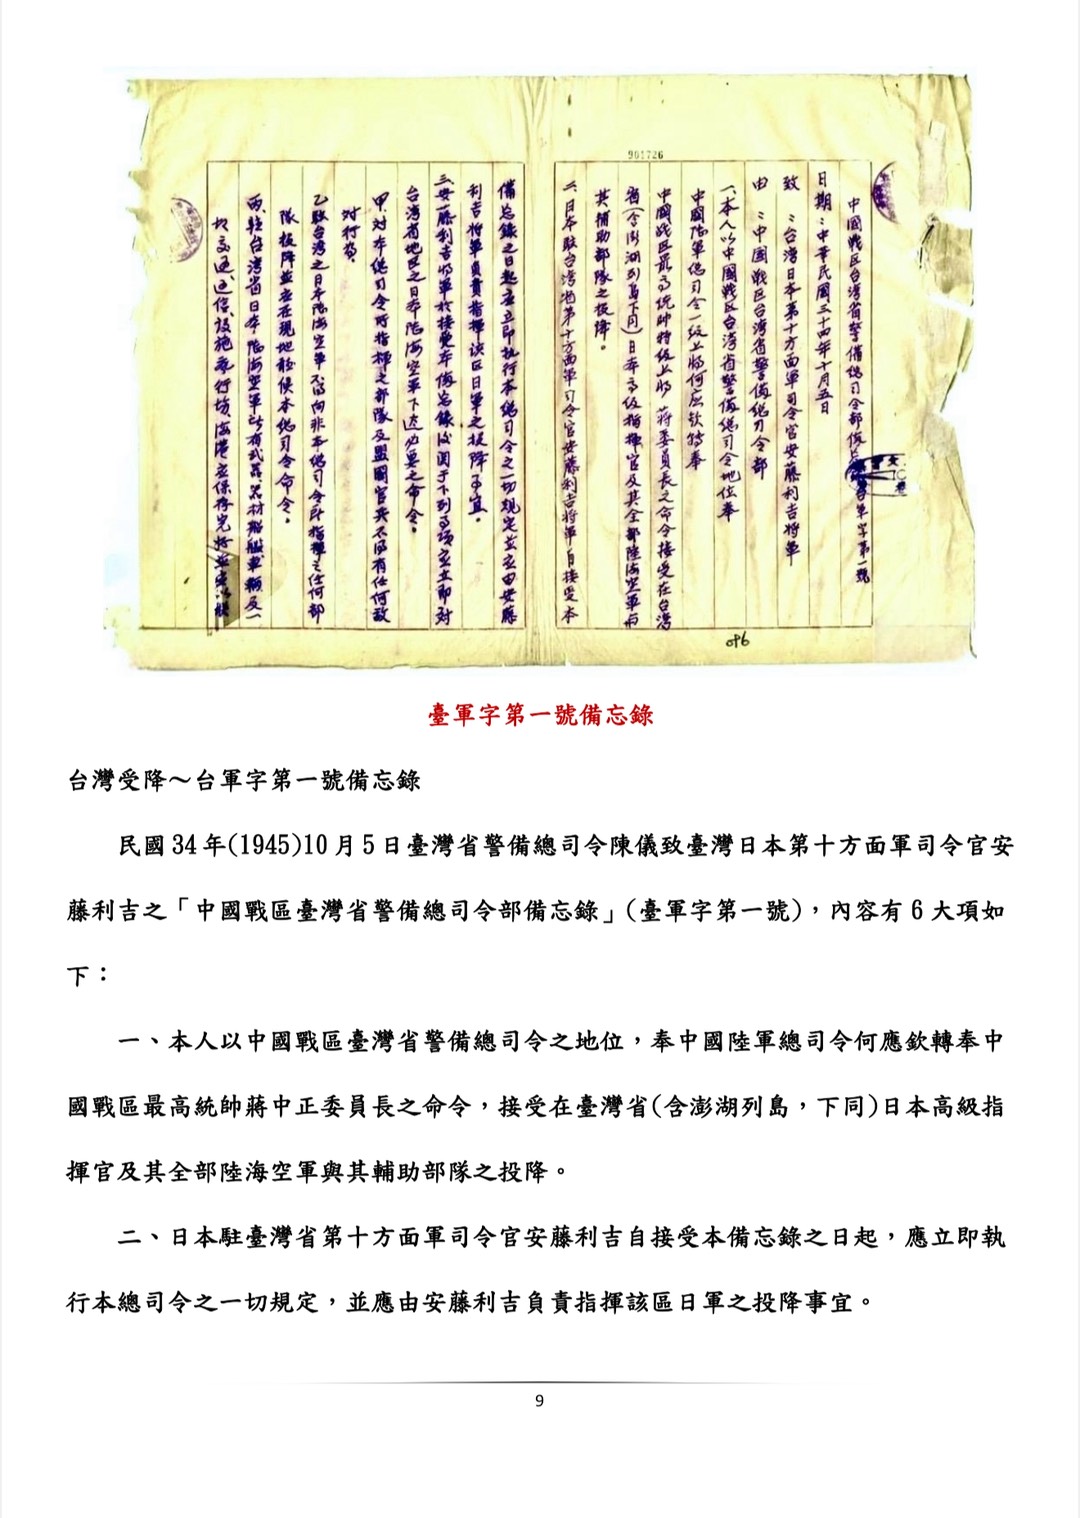 901726
中國戰区台湾省警備總司令部備
軍字第一號
日期：中華民國三十四年十月五日
致：台湾日本第十方面軍司令官安藤利吉將軍
由：中國戰区台湾省警備總司令部
一、本人以中國戰区台湾省警備總司令地位奉
中國陸軍總司令一級上將何应钦轉奉
中國战区最高统帥特级上將 蒋委員長之命令接受在台湾
省(含澎湖列島下同)日本高级指揮官及其全部陸海空軍与
其補助部隊之投降。
二、日本駐台湾省第十方面軍司令官安藤利吉將軍自接受本
備忘錄之日起应立即执行本總司令之一切規定並应由安藤
利吉將軍負責指揮该区日軍之投降事宜。
三、安藤利吉將軍於接受本備忘錄後関于下列事項应立即对
台湾省地区之日本陸海空軍下达必要之命令。
甲、对本總司令所指揮之部隊及盟國官兵不得有任何敌
对行為。
乙、駐台湾之日本陸海空軍不得向非本總司令所指揮之任何部
隊投降並应在现地聽候本總司令命令。
丙、駐台湾省日本陸海空軍所有武器器材船艦車輛及一
切交通、通信、設施飛行场、海港应保持完
096
臺軍字第一號備忘錄
台灣受降～台軍字第一號備忘錄
民國34年(1945)10月5日臺灣省警備總司令陳儀致臺灣日本第十方面軍司令官安
藤利吉之「中國戰區臺灣省警備總司令部備忘錄」(臺軍字第一號)，內容有6大項如
下：
一、本人以中國戰區臺灣省警備總司令之地位，奉中國陸軍總司令何應欽轉奉中
國戰區最高統帥蔣中正委員長之命令，接受在臺灣省(含澎湖列島，下同)日本高級指
揮官及其全部陸海空軍與其輔助部隊之投降。
二、日本駐臺灣省第十方面軍司令官安藤利吉自接受本備忘錄之日起，應立即執
行本總司令之一切規定，並應由安藤利吉負責指揮該區日軍之投降事宜。
9